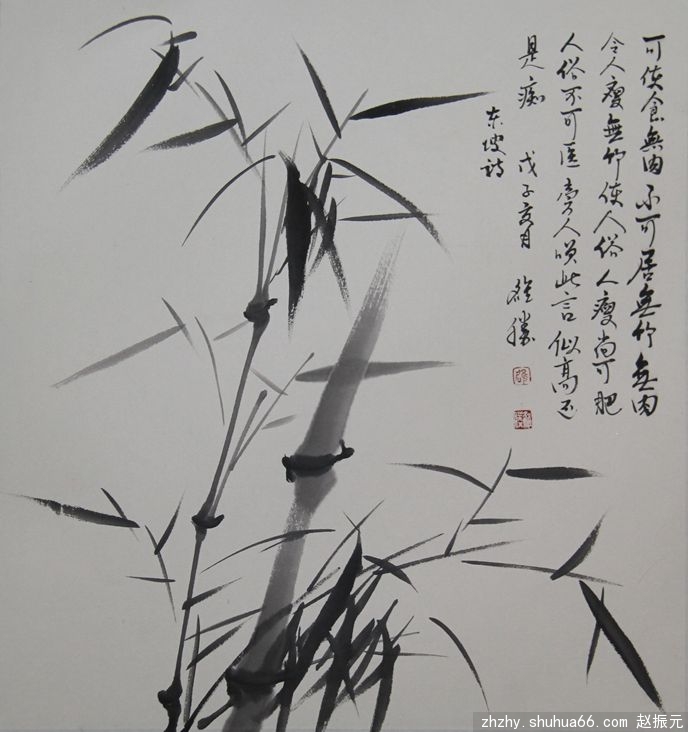 可使食無肉不可居無竹無肉
令人瘦無竹使人俗人瘦尚可肥
人俗不可医旁人咲此言似高还
是痴 戊子夏月
东坡诗
zhzhy.shuhua66.com 赵振元